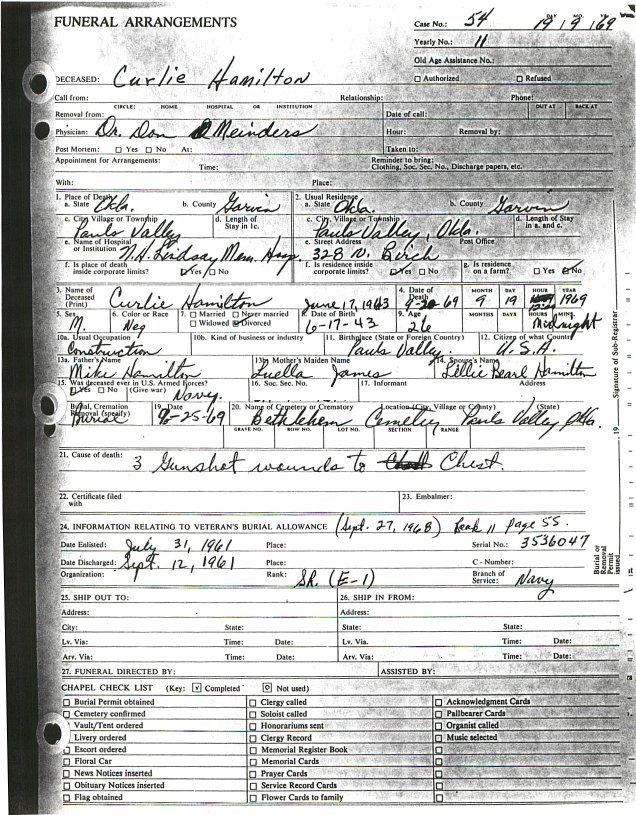 FUNERAL ARRANGEMENTS
Case No.: 54 DAY MO. YR. 19 / 9 / 69
Yearly No.: 11
Old Age Assistance No.:
DECEASED: Curlie Hamilton ☐ Authorized ☐ Refused
Call from: Relationship: Phone:
CIRCLE: HOME HOSPITAL OR INSTITUTION OUT AT BACK AT
Removal from: Date of call:
Physician: Dr. Don Meinders Hour: Removal by:
Post Mortem: ☐ Yes ☐ No At: Taken to:
Appointment for Arrangements: Time: Reminder to bring: Clothing, Soc. Sec. No., Discharge papers, etc.
With: Place:
1. Place of Death 2. Usual Residence
a. State Okla. b. County Garvin a. State Okla. b. County Garvin
c. City, Village or Township d. Length of Stay in 1c. c. City, Village or Township d. Length of Stay in a. and c.
Pauls Valley Pauls Valley, Okla.
e. Name of Hospital or Institution e. Street Address Post Office
Lindsay Mem. Hosp. 328 N. Birch
f. Is place of death inside corporate limits? ☑ Yes ☐ No f. Is residence inside corporate limits? ☑ Yes ☐ No g. Is residence on a farm? ☐ Yes ☑ No
3. Name of Deceased (Print) Curlie Hamilton June 17, 1943 4. Date of Death 9- -69 MONTH 9 DAY 19 HOUR YEAR 1969
5. Sex M. 6. Color or Race Neg 7. ☐ Married ☐ Never married ☐ Widowed ☑ Divorced 8. Date of Birth 6-17-43 9. Age 26 MONTHS DAYS HOURS MINS. Midnight
10a. Usual Occupation 10b. Kind of business or industry 11. Birthplace (State or Foreign Country) 12. Citizen of what Country
Construction Pauls Valley. U.S.A.
13a. Father's Name 13b. Mother's Maiden Name 14. Spouse's Name
Mike Hamilton Luella James Lillie Pearl Hamilton
15. Was deceased ever in U.S. Armed Forces? 16. Soc. Sec. No. 17. Informant Address
☑ Yes ☐ No (Give war) Navy.
Burial, Cremation Removal (specify) 19. Date 20. Name of Cemetery or Crematory Location (City, Village or County) (State)
Burial 9-25-69 Bethlehem Cemetery Pauls Valley Okla.
GRAVE NO. ROW NO. LOT NO. SECTION RANGE
21. Cause of death: 3 Gunshot wounds to Chest.
22. Certificate filed with 23. Embalmer:
24. INFORMATION RELATING TO VETERAN'S BURIAL ALLOWANCE (Sept. 27, 1968) Book 11 Page 55.
Date Enlisted: July 31, 1961 Place: Serial No.: 3536047
Date Discharged: Sept. 12, 1961 Place: C - Number:
Organization: Rank: SR. (E-1) Branch of Service: Navy
25. SHIP OUT TO: 26. SHIP IN FROM:
Address: Address:
City: State: State: State:
Lv. Via: Time: Date: Lv. Via: Time: Date:
Arv. Via: Time: Date: Arv. Via: Time: Date:
27. FUNERAL DIRECTED BY: ASSISTED BY:
CHAPEL CHECK LIST (Key: ☑ Completed ⊙ Not used)
☐ Burial Permit obtained ☐ Clergy called ☐ Acknowledgment Cards
☐ Cemetery confirmed ☐ Soloist called ☐ Pallbearer Cards
Vault/Tent ordered ☐ Honorariums sent ☐ Organist called
Livery ordered ☐ Clergy Record ☐ Music selected
Escort ordered ☐ Memorial Register Book ☐
☐ Floral Car ☐ Memorial Cards ☐
☐ News Notices inserted ☐ Prayer Cards ☐
☐ Obituary Notices inserted ☐ Service Record Cards ☐
☐ Flag obtained ☐ Flower Cards to family ☐
Burial or Removal Permit issued
19
Signature of Sub-Registrar